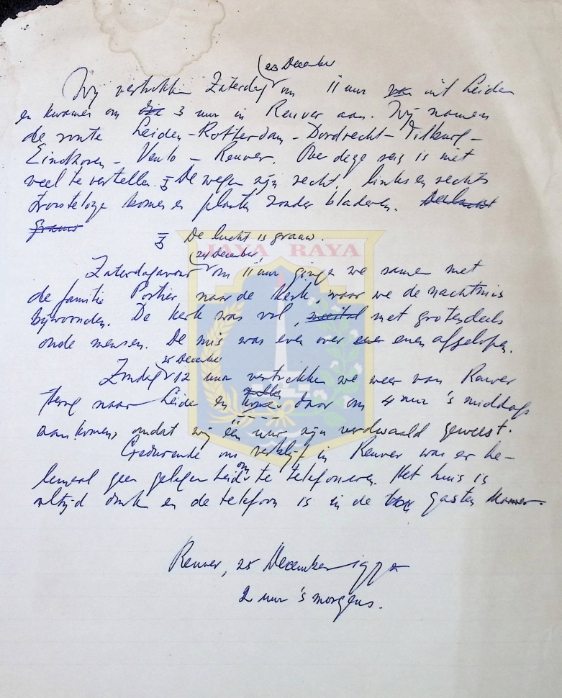 (23 December
Wij vertrekken Zaterdag om 11 uur van uit Leiden
en kwamen om 3 uur in Reuver aan. Wij namen
de route Leiden - Rotterdam - Dordrecht - Tilburg -
Eindhoven - Venlo - Reuver. Over deze reis is niet
veel te vertellen. De wegen zijn recht, links en rechts
troosteloze bomen en planten zonder bladeren.
grauw
De lucht is grauw.
JAYA RAYA
(24 december
Zaterdagavond om 11 uur gingen we samen met
de familie Portier naar de Kerk, waar we de nachtmis
bijwoonden. De kerk was vol, meestal met grotendeels
oude mensen. De mis was even over enen afgelopen.
25 December
Zondag 12 uur vertrekken we weer van Reuver
zullen
terug naar Leiden en daar om 4 uur 's middags
aankomen, omdat wij een uur zijn verdwaald geweest.
Gedurende ons verblijf in Reuver was er he-
om
lemaal geen gelegenheid te telefoneren. Het huis is
altijd druk en de telefoon is in de gasten kamer.
Reuver, 25 December
2 uur 's morgens.